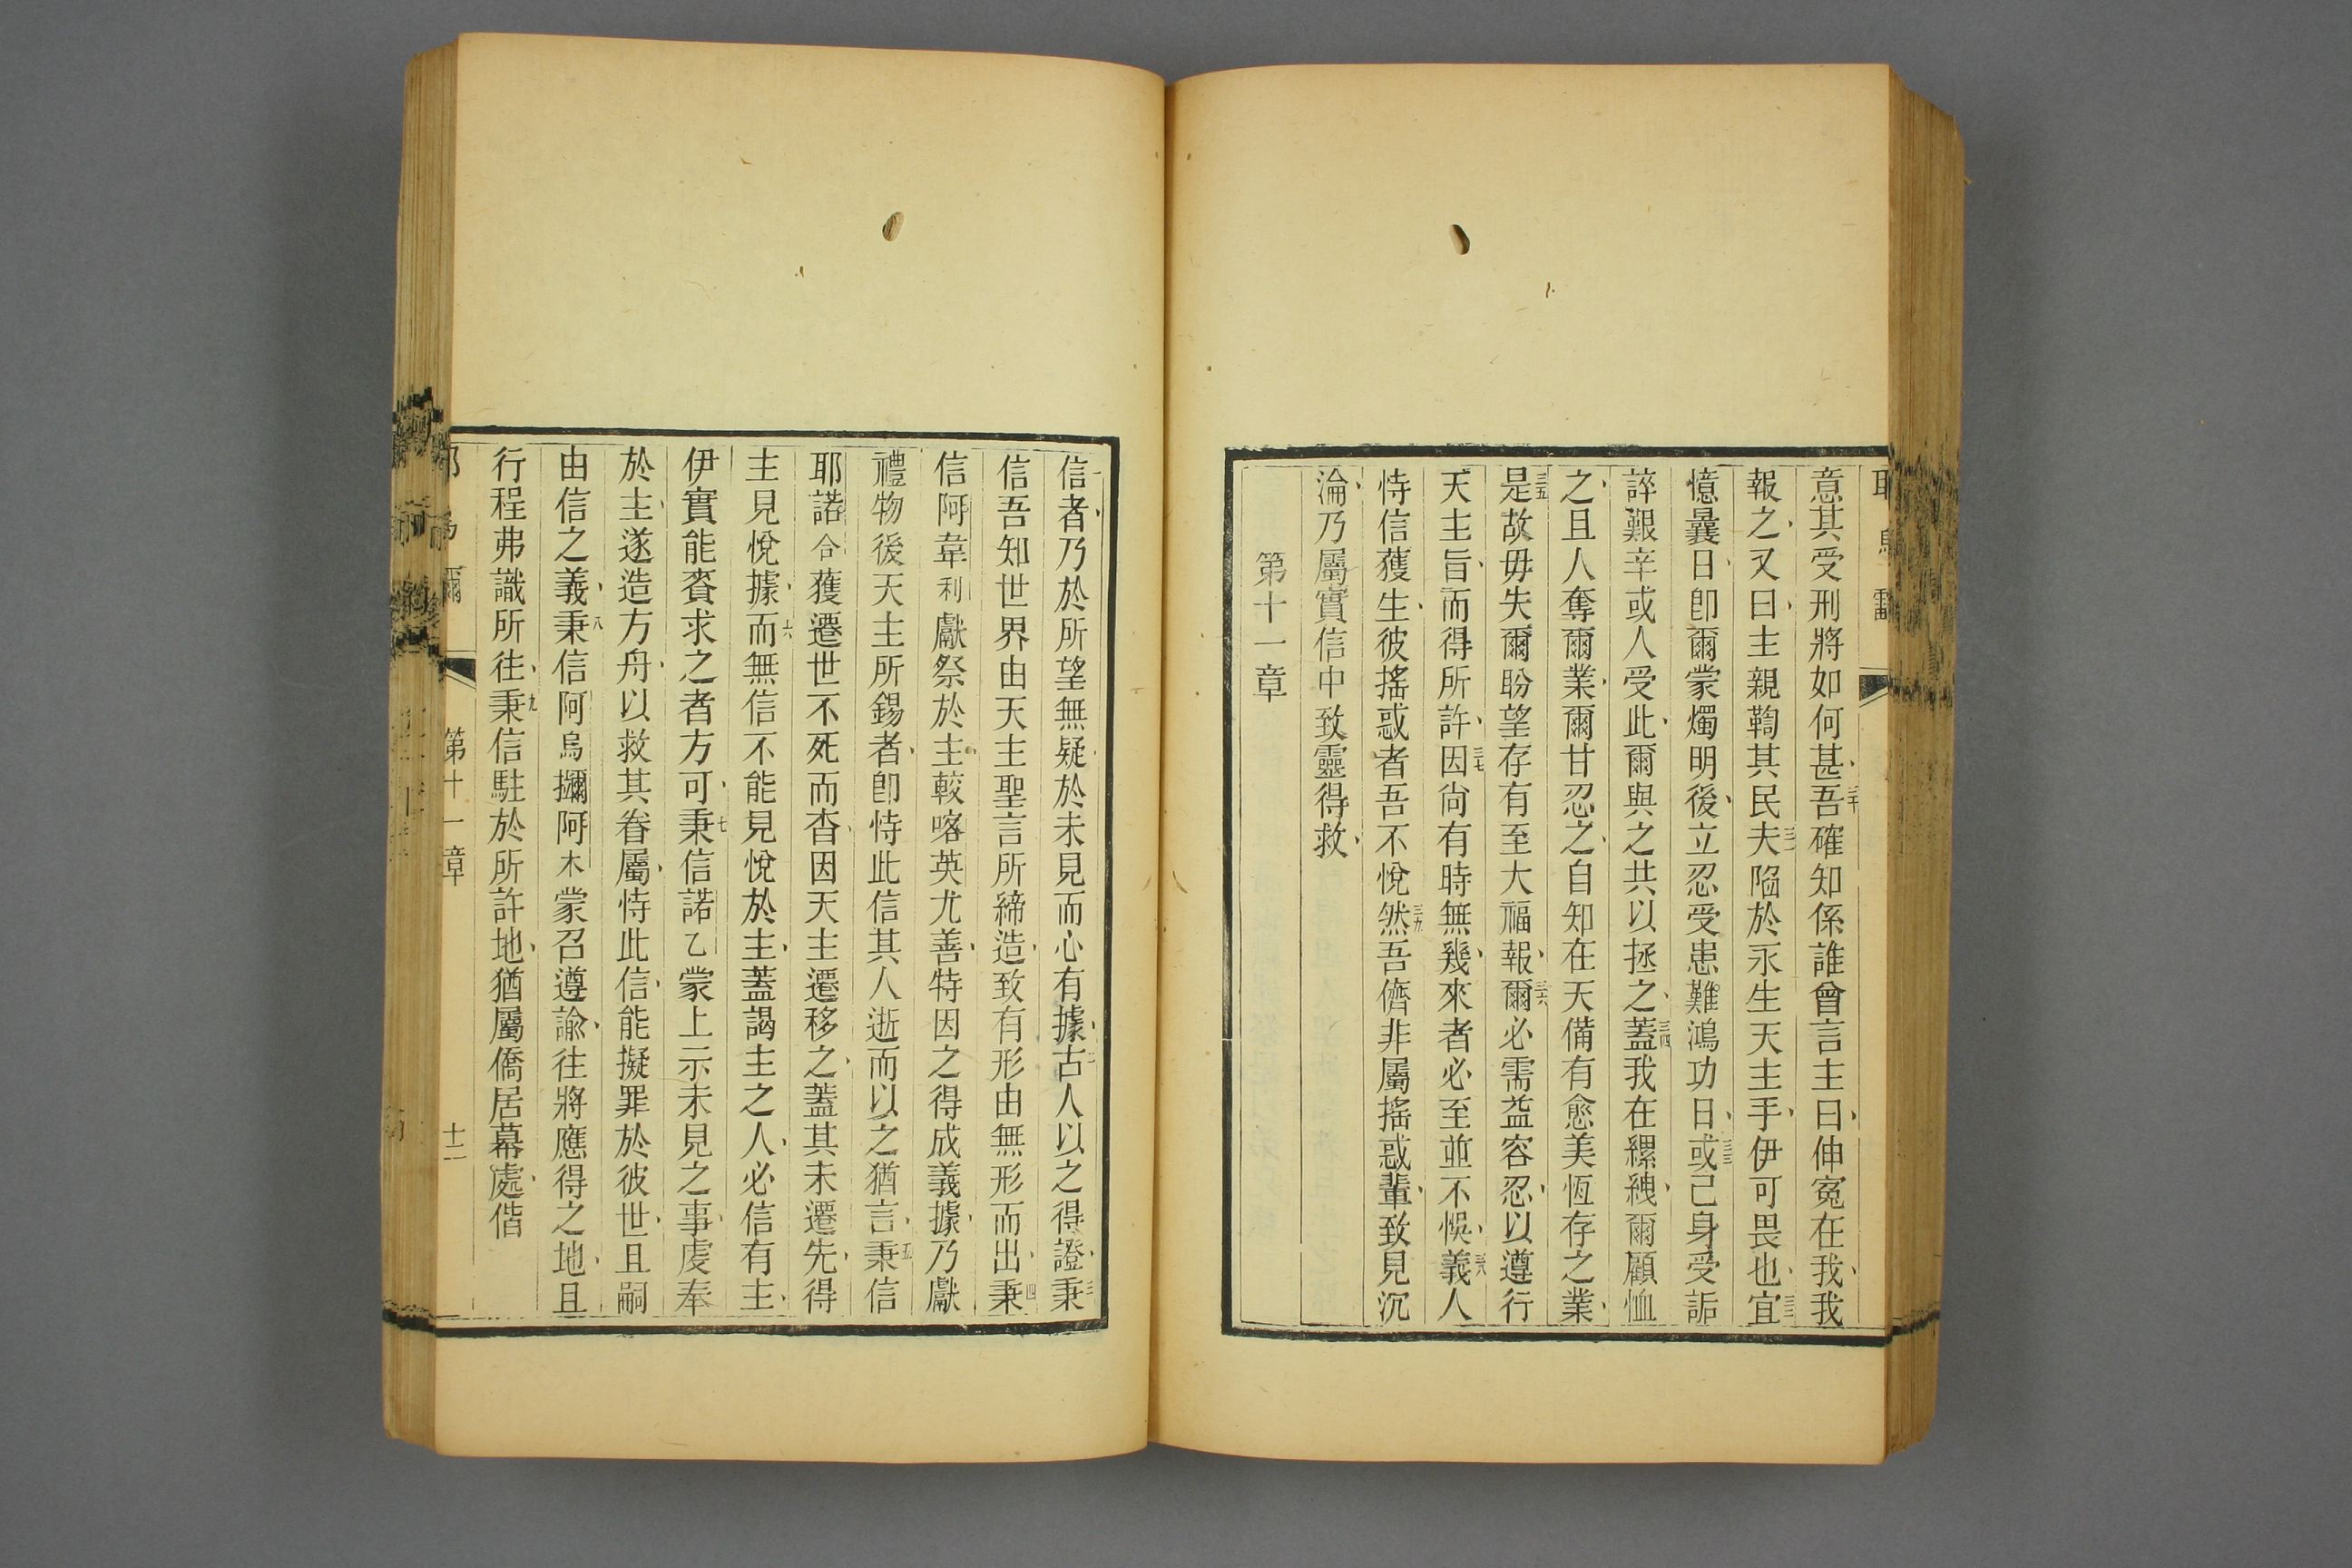 意其受刑將如何甚三十吾確知係誰曾言主曰伸寃在我我
報之又曰主親鞫其民三一夫陷於永生天主手伊可畏也三二宜
憶曩日卽爾蒙燭明後立忍受患難鴻功日三三或己身受詬
誶艱辛或人受此爾與之共以拯之三四蓋我在縲絏爾顧恤
之且人奪爾業爾甘忍之自知在天備有愈美恆存之業
三五是故毋失爾盼望存有至大福報三六爾必需益容忍以遵行
天主旨而得所許三七因尙有時無幾來者必至並不悞三八義人
恃信獲生彼搖惑者吾不悅三九然吾儕非屬搖惑輩致見沉
淪乃屬實信中致靈得救
第十一章
一信者乃於所望無疑於未見而心有據二古人以之得證三秉
信吾知世界由天主聖言所締造致有形由無形而出四秉
信阿韋利獻祭於主較喀英尤善特因之得成義據乃獻
禮物後天主所錫者卽恃此信其人逝而以之猶言五秉信
耶諾合獲遷世不死而杳因天主遷移之蓋其未遷先得
主見悅據六而無信不能見悅於主蓋謁主之人必信有主
伊實能賚求之者方可七秉信諾乙蒙上示未見之事虔奉
於主遂造方舟以救其眷屬恃此信能擬罪於彼世且嗣
由信之義八秉信阿烏擳阿木蒙召遵諭往將應得之地且
行程弗識所往九秉信駐於所許地猶屬僑居幕處偕
爾 第十一章 十二